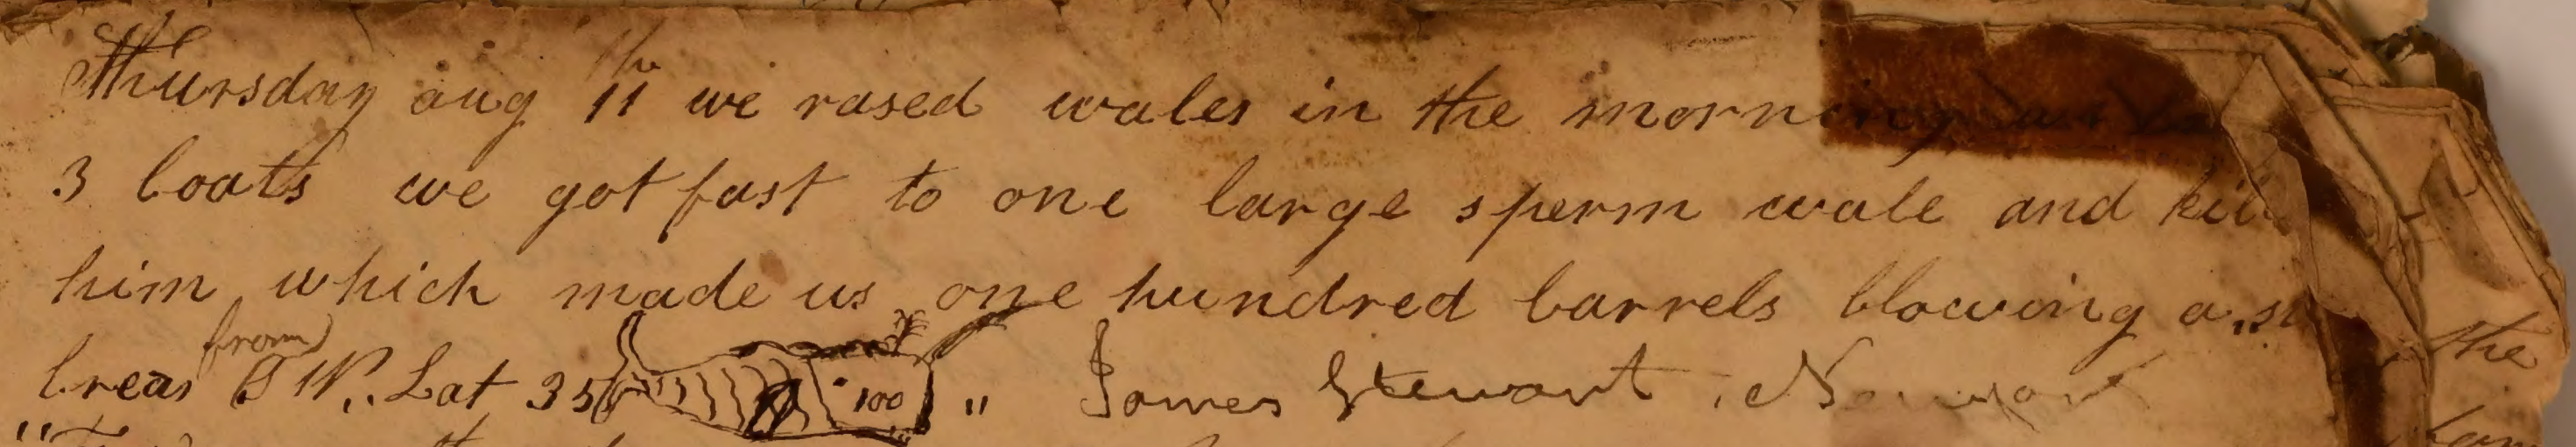 Thursday aug 11th we rased wales in the morning
3 boats we got fast to one large sperm wale and kil
him which made us one hundred barrels blowing a
breas from S W. Lat 35 100 " James Stewart
the